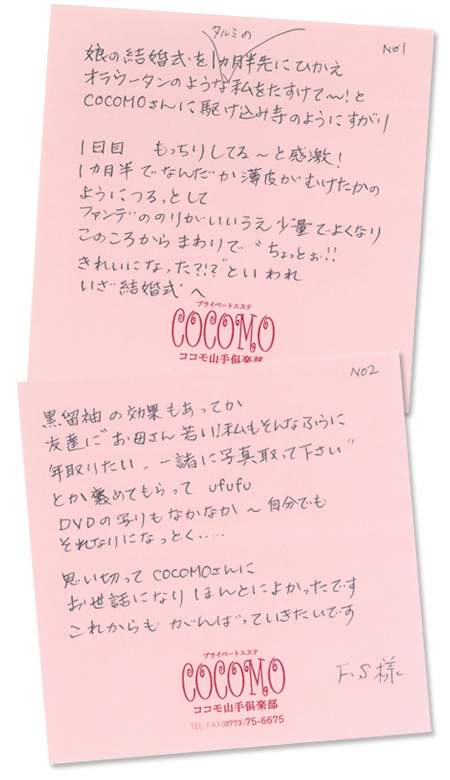 No1
タルミの
娘の結婚式を1ヵ月半先にひかえ
オラウータンのような私をたすけて〜!と
COCOMOさんに駆け込み寺のようにすがり
1日目 もっちりしてる〜と感激!
1ヵ月半でなんだか薄皮がむけたかの
ようにつるっとして
ファンデののりがいいうえ少量でよくなり
このころからまわりで“ちょっとぉ!!
きれいになった?!?”といわれ
いざ結婚式へ
プライベートエステ
COCOMO
ココモ山手倶楽部
No2
黒留袖の効果もあってか
友達に“お母さん若い!私もそんなふうに
年取りたい、一緒に写真取って下さい”
とか褒めてもらって ufufu
DVDの写りもなかなか〜自分でも
それなりになっとく.....
思い切ってCOCOMOさんに
お世話になりほんとによかったです
これからも がんばっていきたいです
プライベートエステ
COCOMO
ココモ山手倶楽部
TEL・FAX(0773)75-6675
F.S様